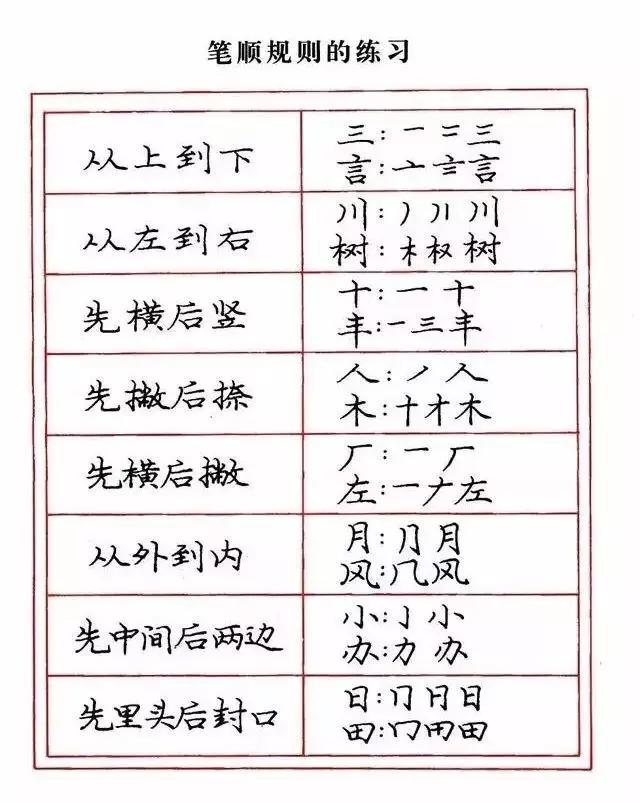 笔顺规则的练习
从上到下
三:一 二 三
言:亠 言 言
从左到右
川:丿 川 川
树:木 权 树
先横后竖
十:一 十
丰:一 三 丰
先撇后捺
人:丿 人
木:十 才 木
先横后撇
厂:一 厂
左:一 𠂇 左
从外到内
月:⺆ 月
风:几 风
先中间后两边
小:亅 小
办:力 办
先里头后封口
日:冂 日 日
田:冂 田 田